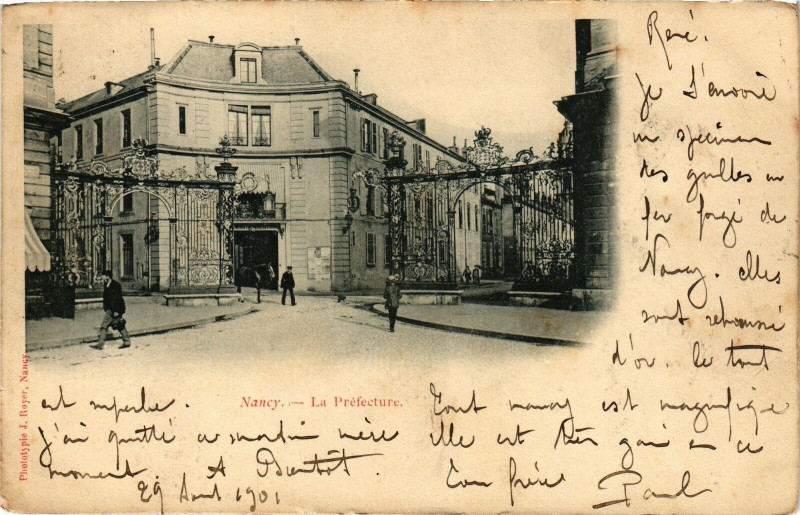 René.
Je t'envoie
un specimen
des grilles en
fer forgé de
Nancy. elles
sont rehaussé
d'or. le tout
est superbe.
J'ai quitté ce matin mère
moment. A Bientôt.
29 Aout 1901
Tout nancy est magnifique
elle est très gaie en ce
Ton frère Paul
Nancy. — La Préfecture.
Phototypie J. Royer, Nancy